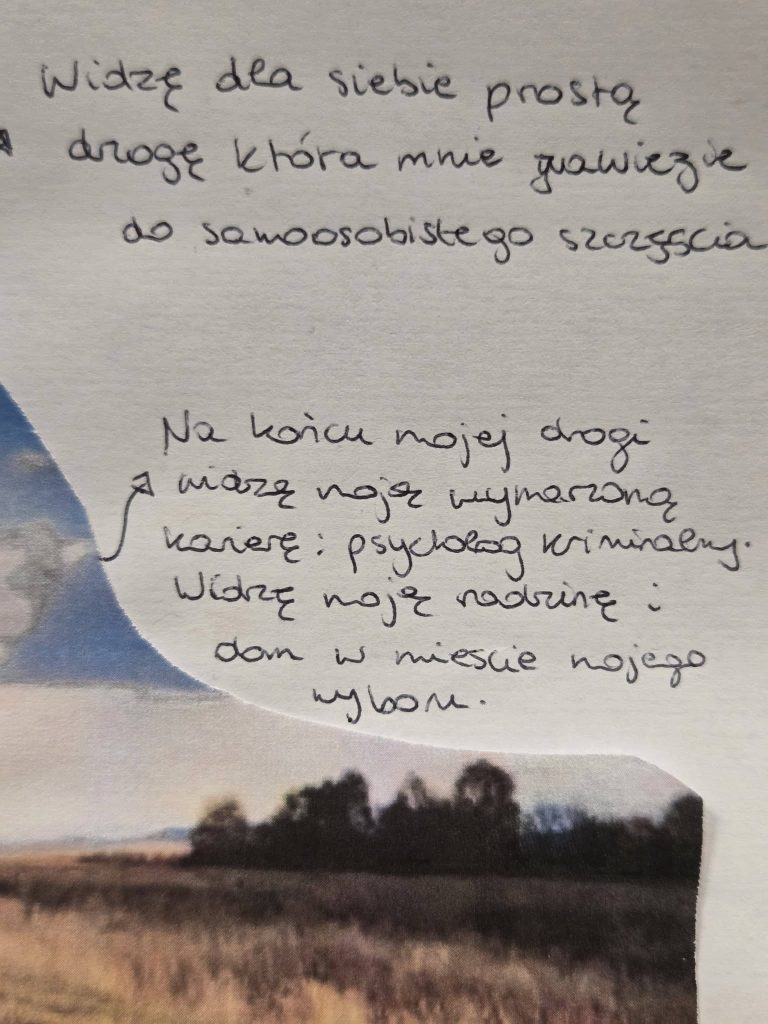 Widzę dla siebie prostą
drogę która mnie zawiezie
do samoosobistego szczęścia
Na końcu mojej drogi
widzę moją wymarzoną
karierę: psycholog kriminalny.
Widzę moją rodzinę i
dom w miescie mojego
wyboru.